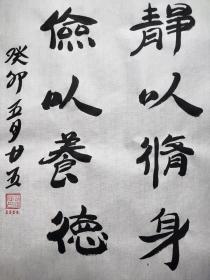 静以脩身
儉以養德
癸卯五月廿五